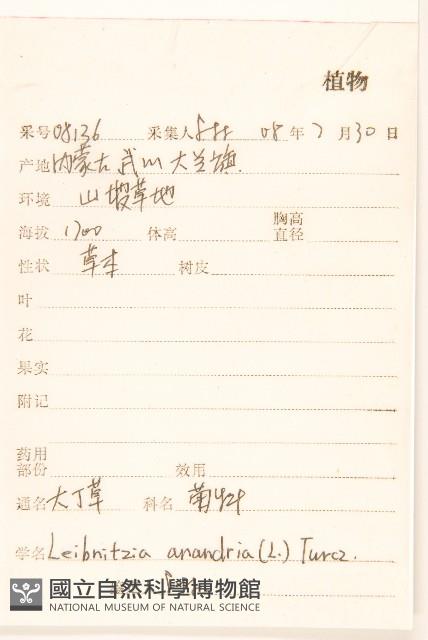 植物
采号 08136 采集人 08年7月30日
产地 内蒙古 武川 大兰旗
环境 山坡草地
海拔 1700 体高 胸高直径
性状 草本 树皮
叶
花
果实
附记
药用部份 效用
通名 大丁草 科名 菊科
学名 Leibnitzia anandria (L.) Turcz.
國立自然科學博物館
NATIONAL MUSEUM OF NATURAL SCIENCE